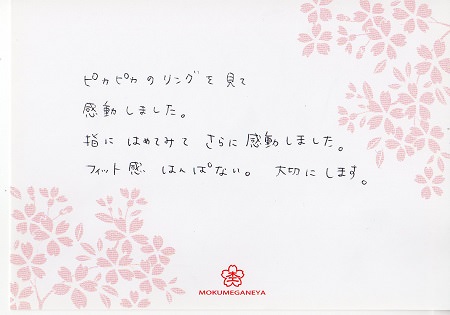 ピカピカのリングを見て
感動しました。
指にはめてみてさらに感動しました。
フィット感、はんぱない。大切にします。
MOKUMEGANEYA